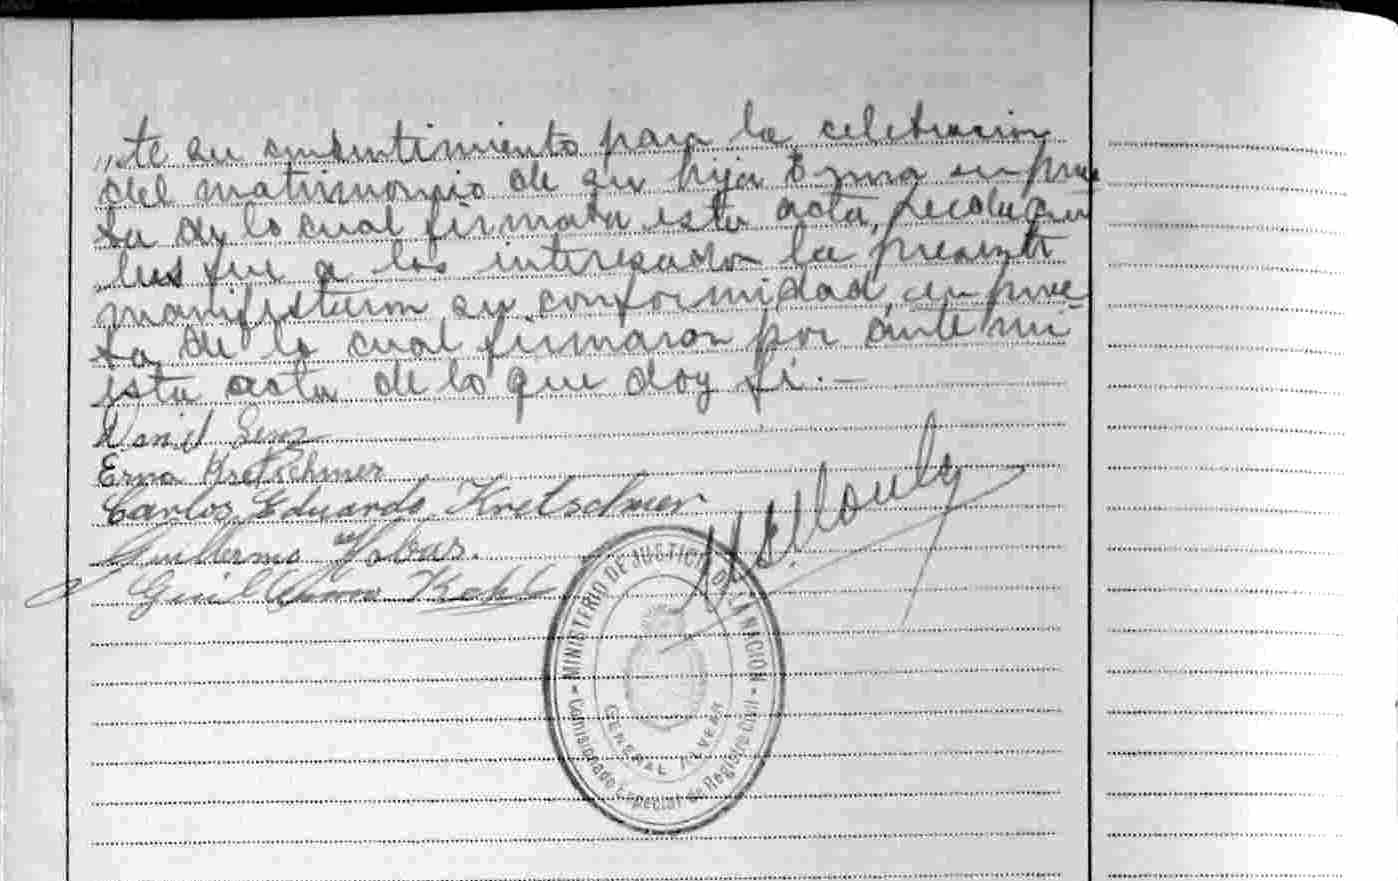 te su consentimiento para la celebracion
del matrimonio de su hija Erna en prue
ba de lo cual firmara esta acta,
que a los interesados la presente
manifestaron su conformidad, en prue
ba de lo cual firmaron por ante mi
esta acta de lo que doy fé.—
Erna Kretschmer
Carlos Eduardo Kretschmer.
Guillermo
Guillermo
MINISTERIO DE JUSTICIA DE LA NACION
GENERAL ALVEAR
Comisionado Especial de Registro Civil